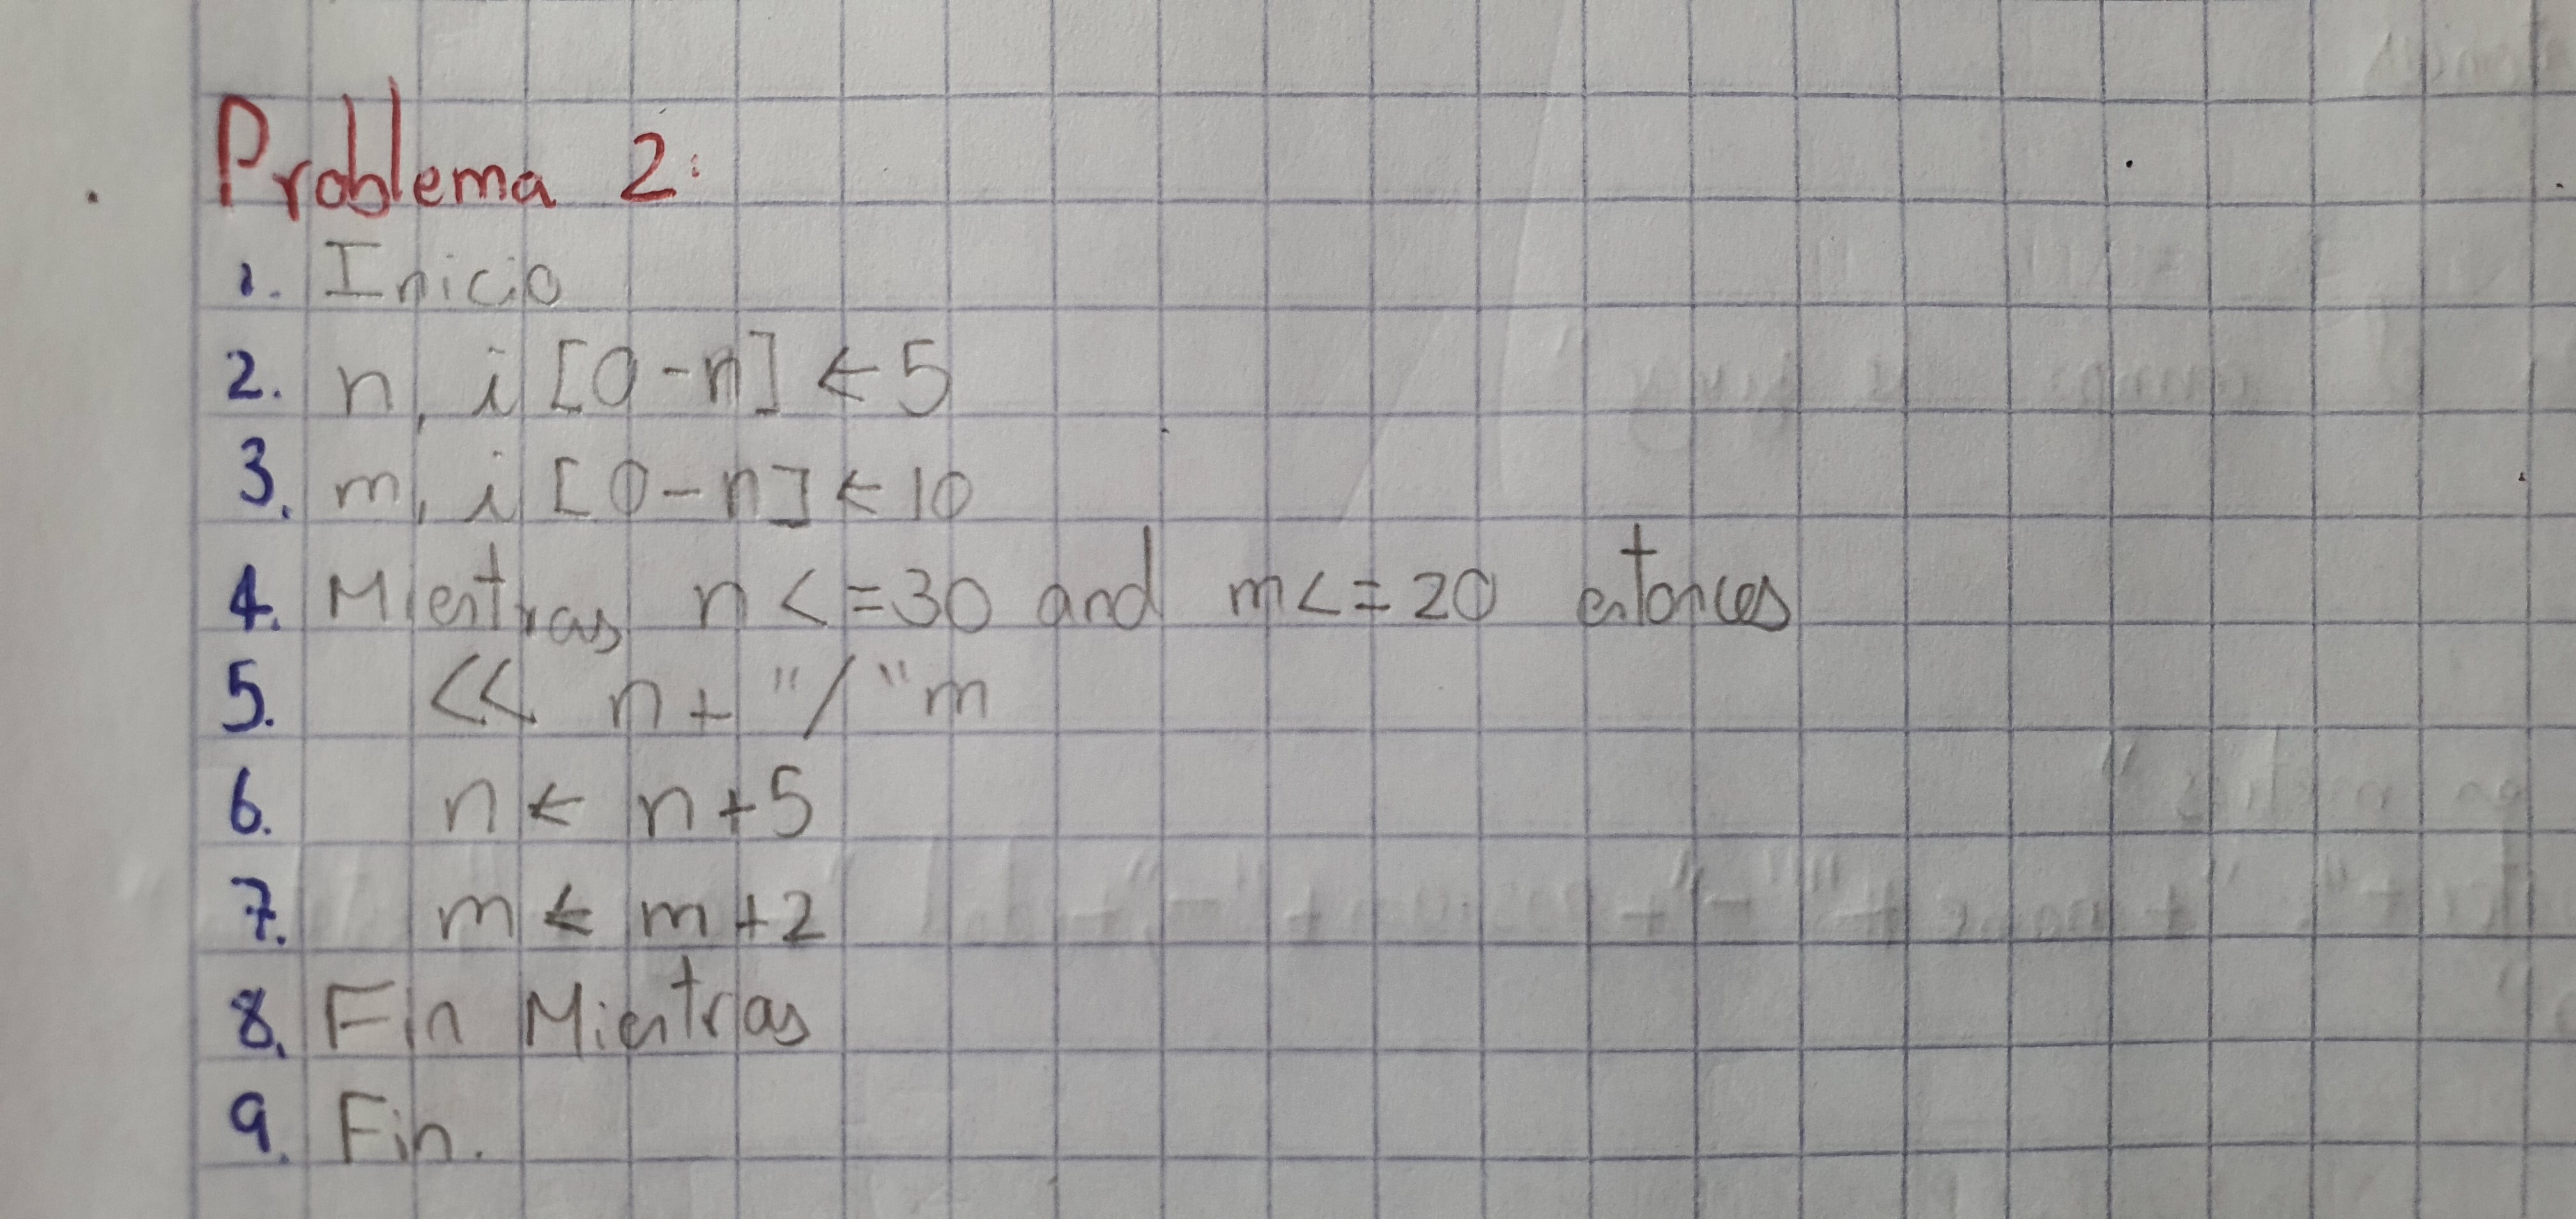 Problema 2:
1. Inicio
2. n, i [0-n] ← 5
3. m, i [0-n] ← 10
4. Mientras n <= 30 and m <= 20 entonces
5. << n + "/" m
6. n ← n + 5
7. m ← m + 2
8. Fin Mientras
9. Fin.